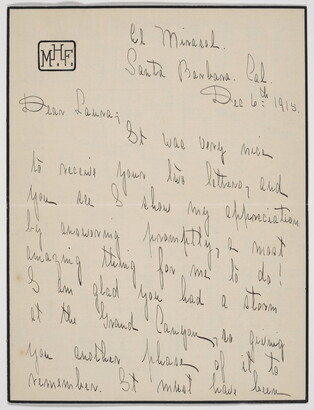 M.H.F.
El Mirasol.
Santa Barbara. Cal.
Dec 6th 1915.
Dear Laura;
It was very nice
to receive your two letters, and
you see I show my appreciation
by answering promptly, a most
amazing thing for me to do!
I am glad you had a storm
at the Grand Canyon, so giving
you another phase of it to
remember. It must have been